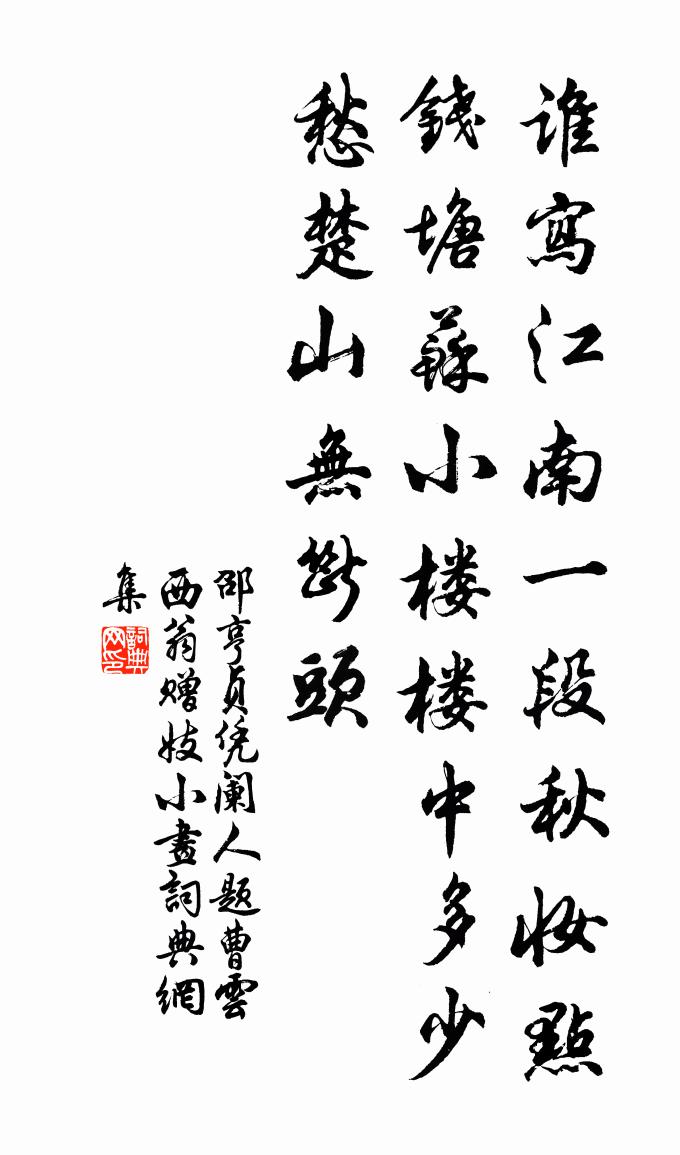 誰寫江南一段秋妆點
錢塘蘇小楼楼中多少
愁楚山無斷頭
邵亨貞凭阑人題曹雲
西翁赠妓小畫詞典網
集
詞典网印